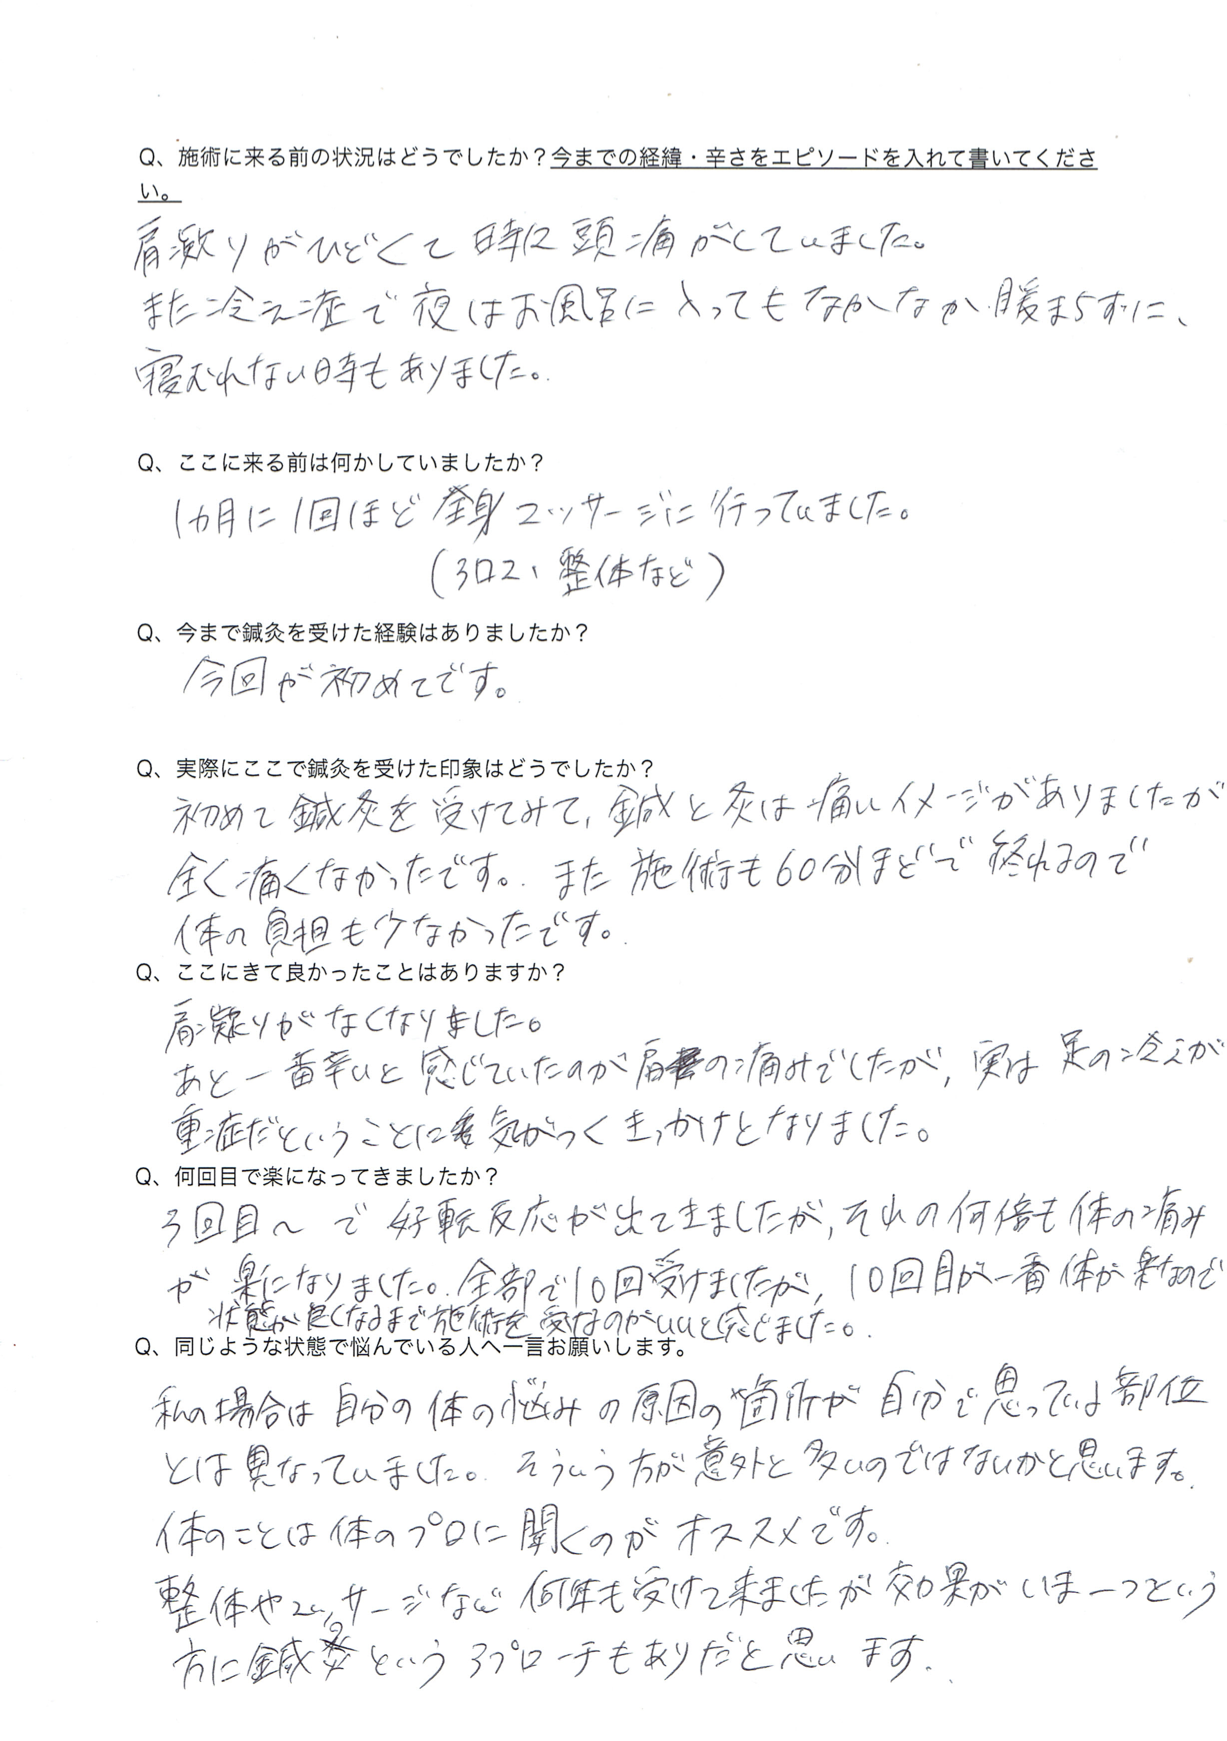 Q、施術に来る前の状況はどうでしたか？今までの経緯・辛さをエピソードを入れて書いてくださ
い。
肩凝りがひどくて時に頭痛がしていました。
また冷え症で夜はお風呂に入ってもなかなか暖まらずに、
寝むれない時もありました。
Q、ここに来る前は何かしていましたか？
1カ月に1回ほど全身マッサージに行っていました。
(アロマ、整体など)
Q、今まで鍼灸を受けた経験はありましたか？
今回が初めてです。
Q、実際にここで鍼灸を受けた印象はどうでしたか？
初めて鍼灸を受けてみて、鍼と灸は痛いイメージがありましたが
全く痛くなかったです。また施術も60分ほどで終れるので
体の負担も少なかったです。
Q、ここにきて良かったことはありますか？
肩凝りがなくなりました。
あと一番辛いと感じていたのが肩の痛みでしたが、実は足の冷えが
重症だということに気がつくきっかけとなりました。
Q、何回目で楽になってきましたか？
3回目〜で好転反応が出てきましたが、それの何倍も体の痛み
が楽になりました。全部で10回受けましたが、10回目が一番体が楽なので
状態が良くなるまで施術を受るのがいいと感じました。
Q、同じような状態で悩んでいる人へ一言お願いします。
私の場合は自分の体の悩みの原因の箇所が自分で思っている部位
とは異なっていました。そういう方が意外と多いのではないかと思います。
体のことは体のプロに聞くのがオススメです。
整体やマッサージなど何年も受けて来ましたが効果がいま一つという
方に鍼灸というアプローチもありだと思います。